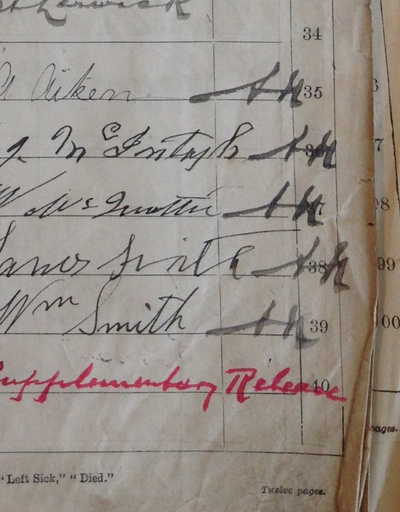 34
Aiken 35
J. McIntosh 36
W McQuattie 37
James Smith 38
Wm Smith 39
Supplementary Release 40
"Left Sick," "Died."
Twelve pages.
6
7
98
99
00
pages.